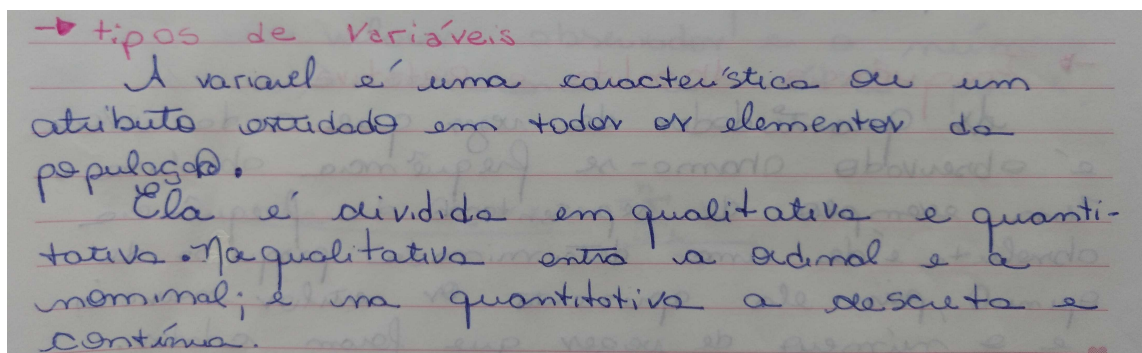 → tipos de Variáveis
A variavel é uma característica ou um
atributo estudado em todos os elementos da
população.
Ela é dividida em qualitativa e quanti-
tativa. Na qualitativa entra a ordinal e a
nominal; e na quantitativa a descreta e
contínua.